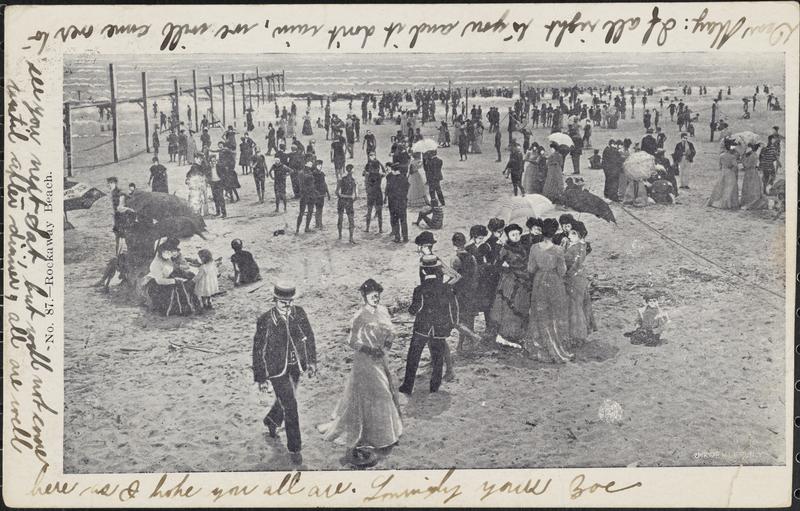 Dear May: If all right to you and it don't rain, we will come over to
see you next Sat but will not come
until after dinner, all are well
here as I hope you all are. Lovingly yours Zoe
No. 87.—Rockaway Beach.